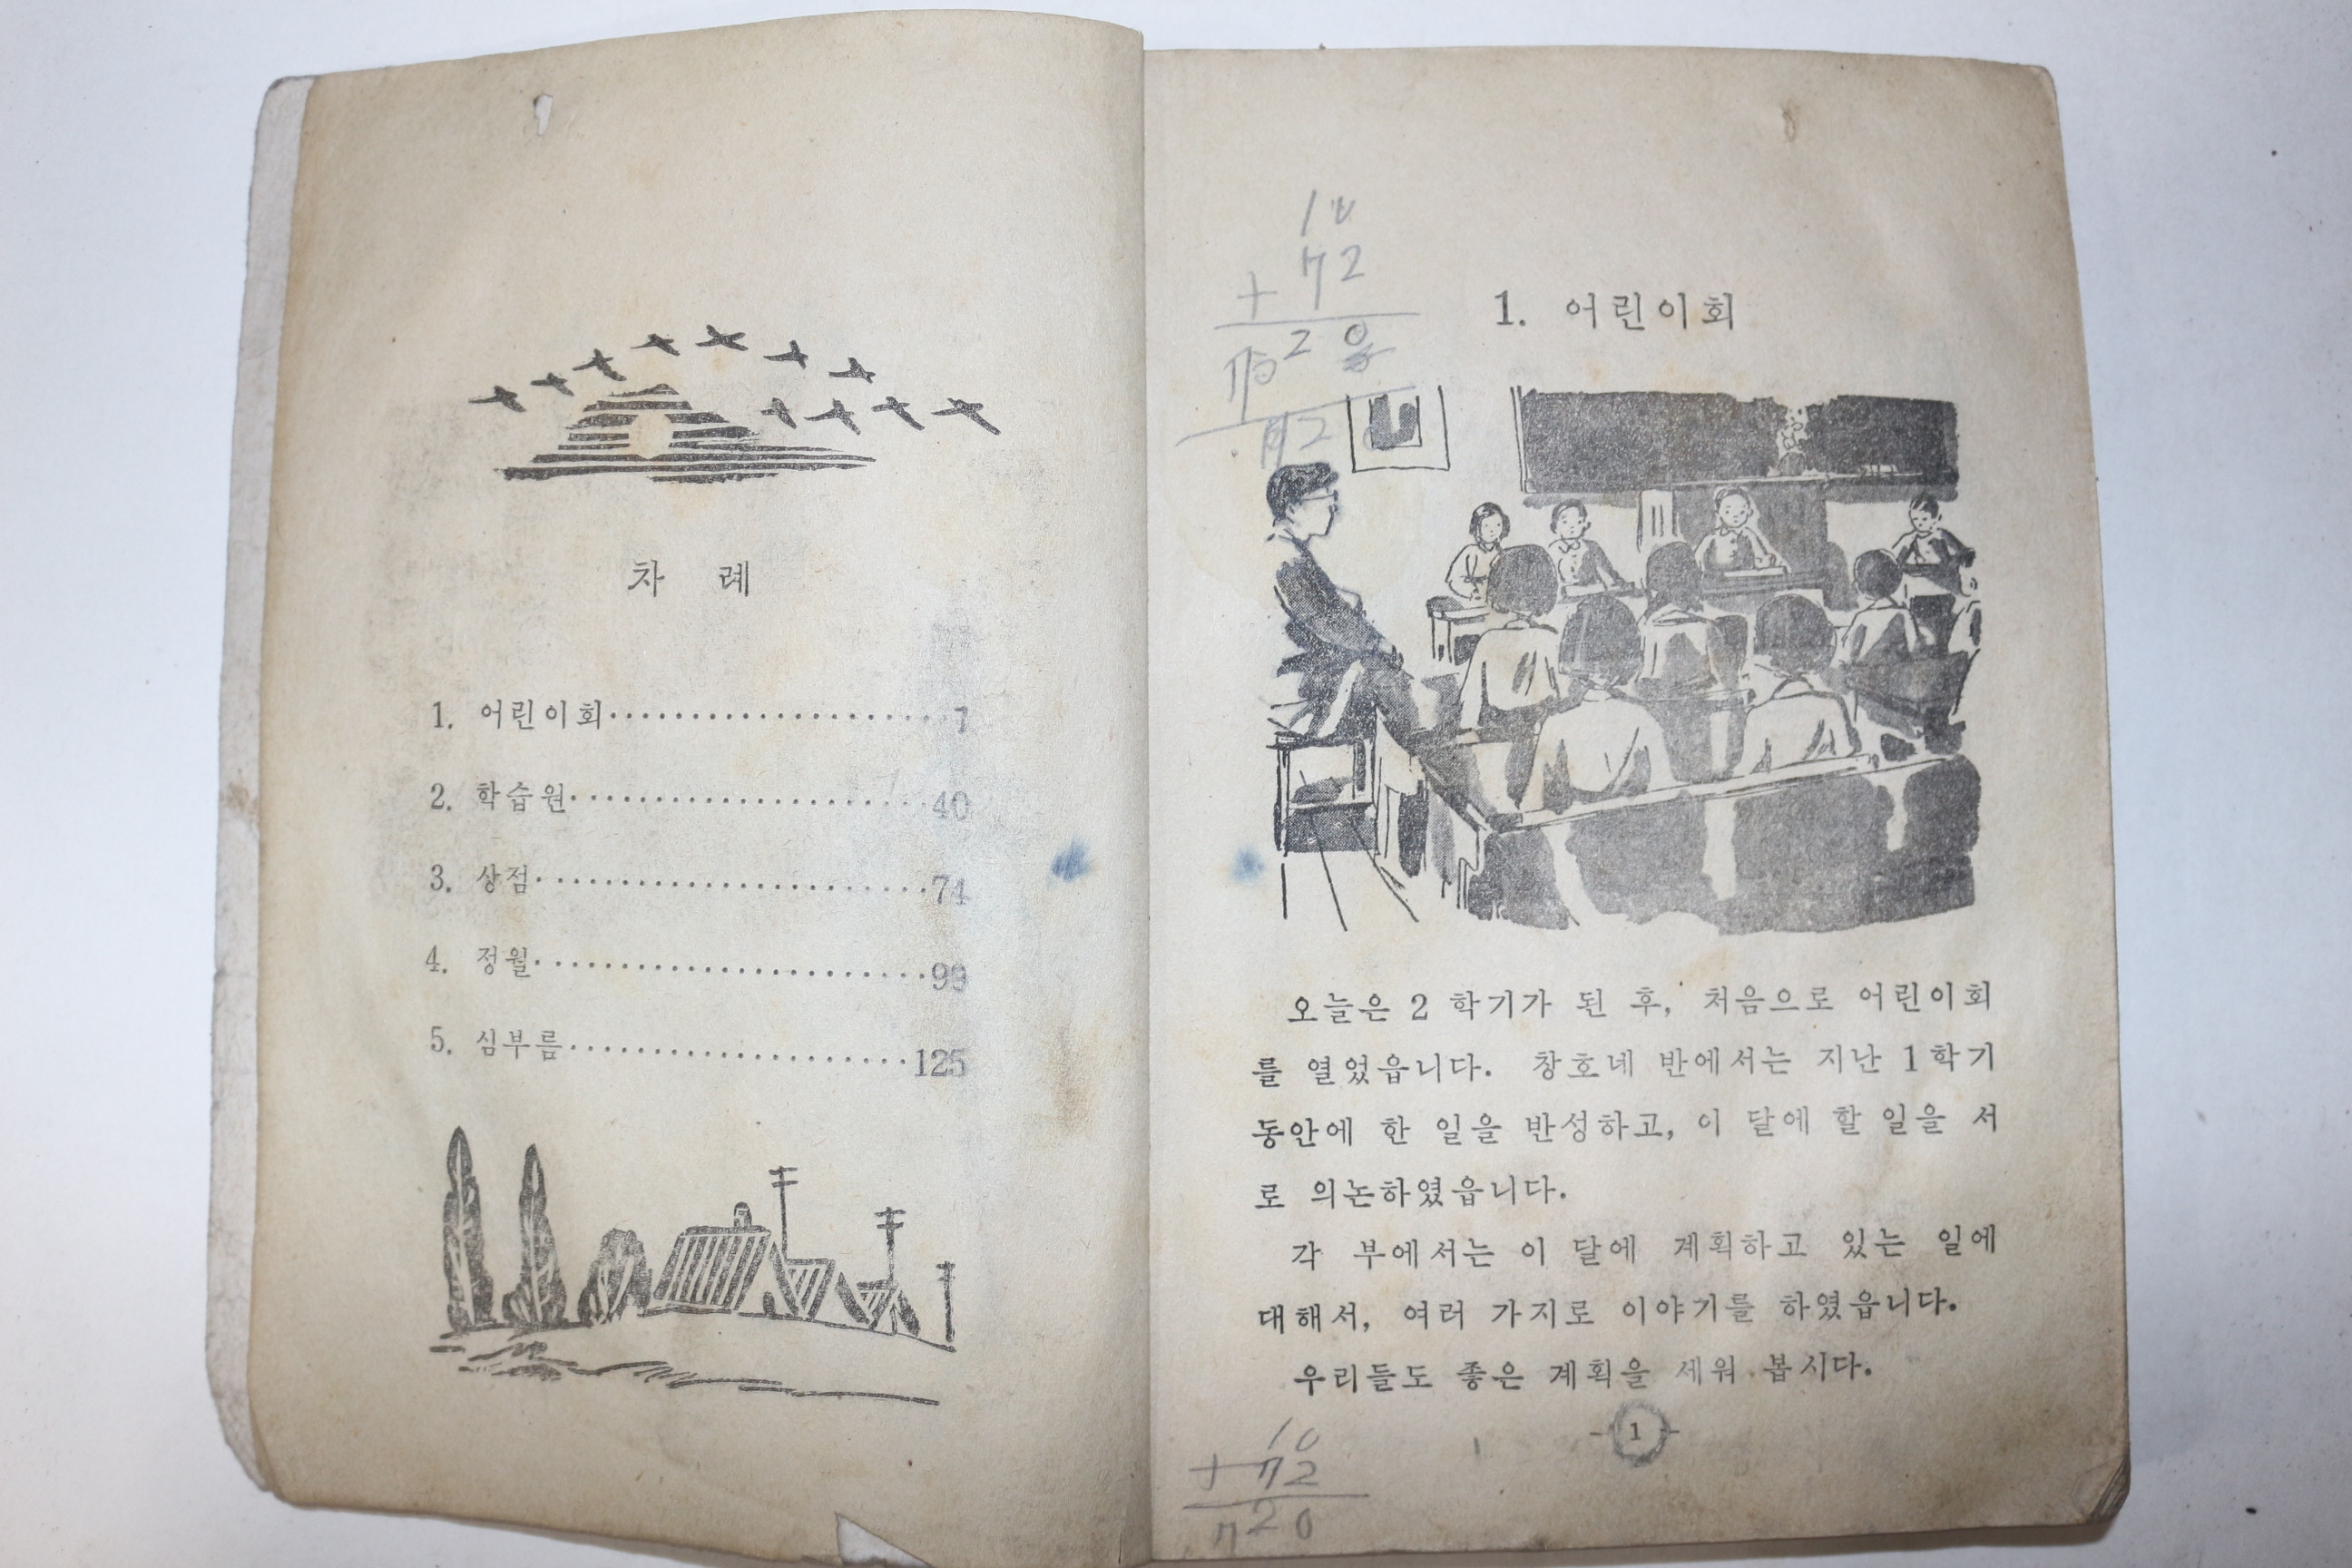 차 례
1. 어린이회····················1
2. 학습원······················40
3. 상점························74
4. 정월························99
5. 심부름·····················125
10
+ 72
1. 어린이회
오늘은 2 학기가 된 후, 처음으로 어린이회
를 열었읍니다. 창호네 반에서는 지난 1학기
동안에 한 일을 반성하고, 이 달에 할 일을 서
로 의논하였읍니다.
각 부에서는 이 달에 계획하고 있는 일에
대해서, 여러 가지로 이야기를 하였읍니다.
우리들도 좋은 계획을 세워 봅시다.
- 1 -
10
+ 72
720